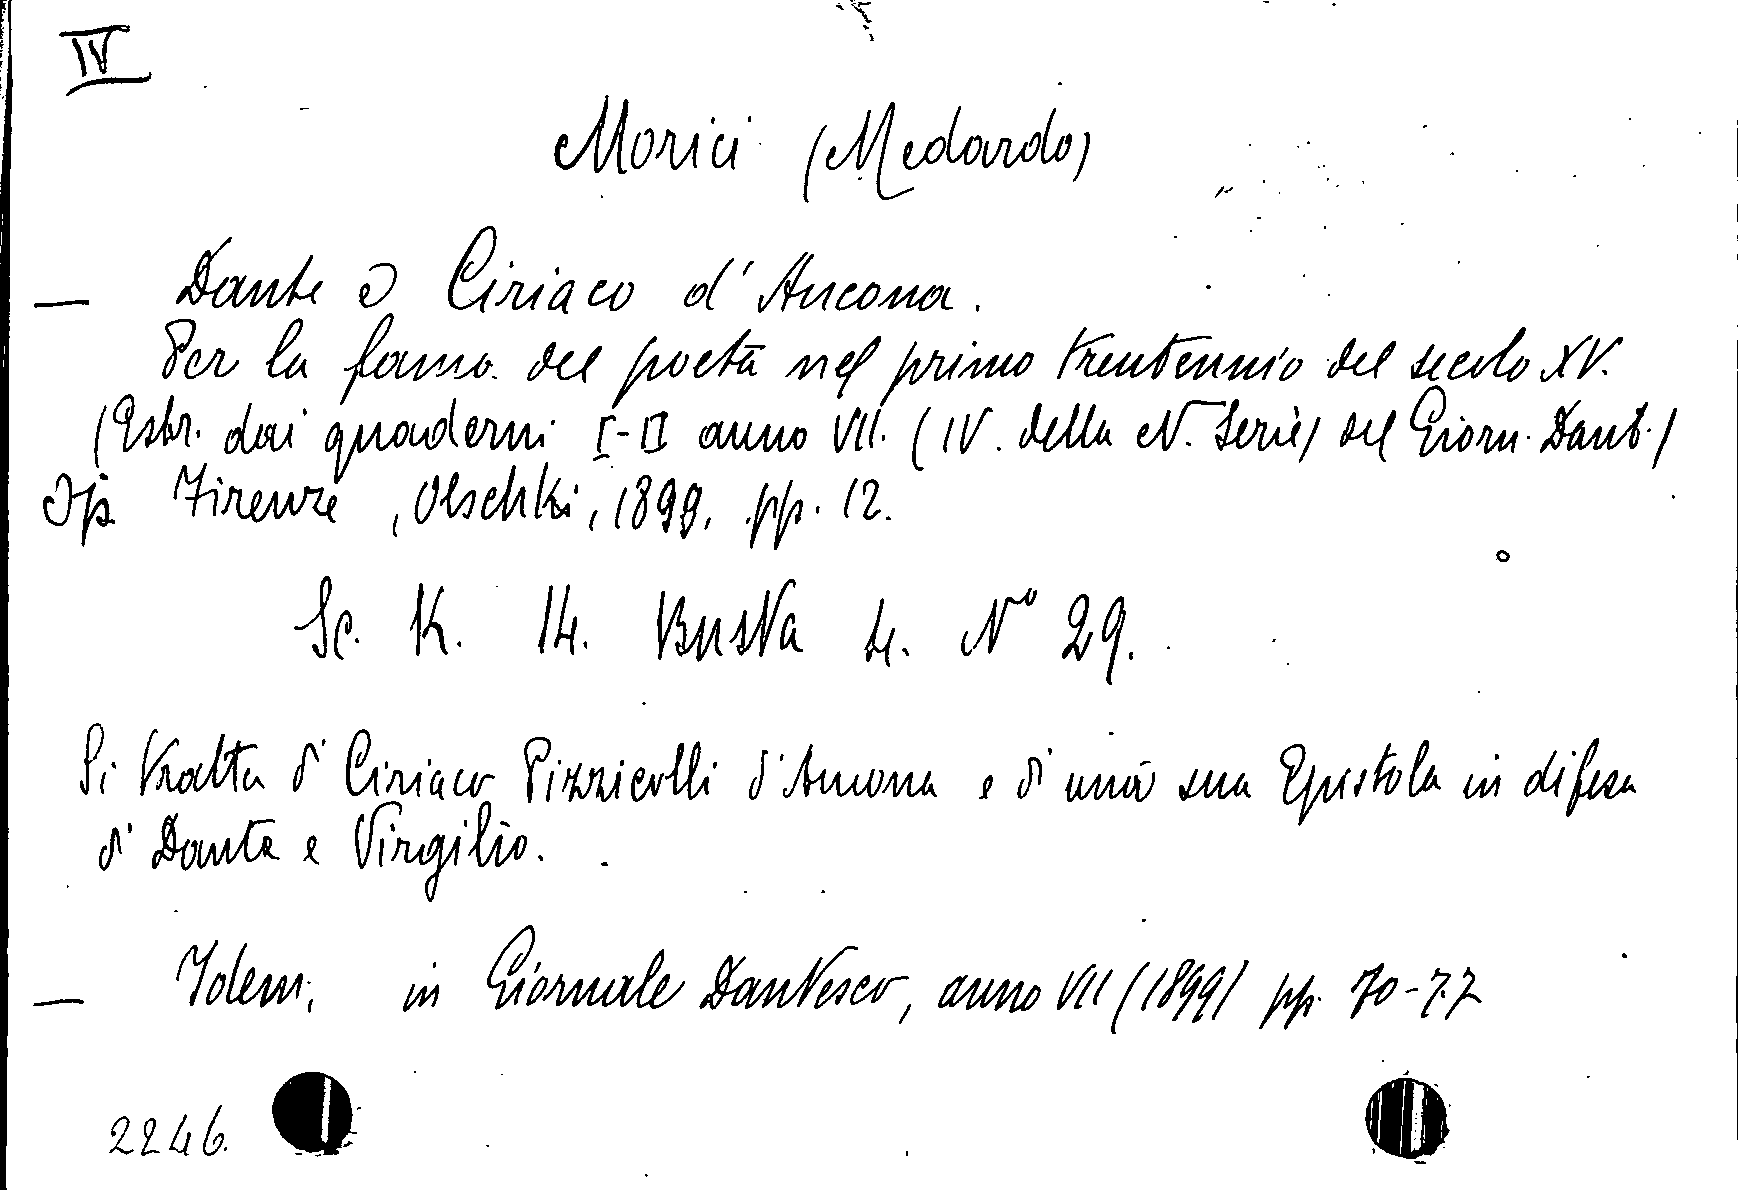 IV
Morici (Medardo)
— Dante e Ciriaco d'Ancona.
Per la fama del poeta nel primo trentennio del secolo XV.
(Estr. dai quaderni I-II anno VII. (IV. della N. Serie) del Giorn. Dant.)
Op. Firenze, Olschki, 1899. pp. 12.
Sc. K. 14. Busta 4. N° 29.
Si tratta di Ciriaco Pizzicolli d'Ancona e di una sua Epistola in difesa
di Dante e Virgilio.
— Idem, in Giornale Dantesco, anno VII (1899) pp. 70-77
2246.